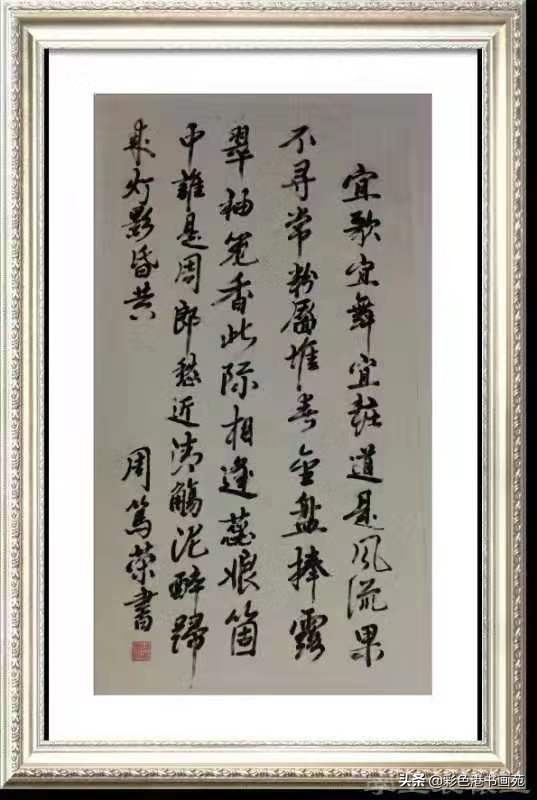 宜歌宜舞宜道是风流果
不寻常粉靥堆春金盘捧露
翠袖笼香此际相逢蕊娘箇
中誰是周郎愁近清觴泥醉歸
来灯影昏黄
周笃荣書
头条 @彩色港书画苑